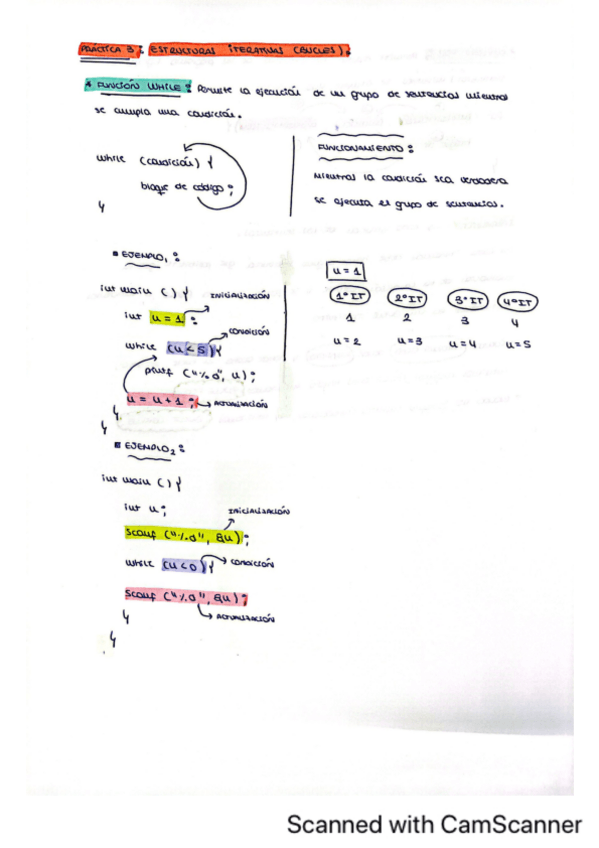 PRÁCTICA 3: ESTRUCTURAS ITERATIVAS (BUCLES).
* FUNCIÓN WHILE: Permite la ejecución de un grupo de sentencias mientras
se cumpla una condición.
while (condición) {
bloque de código;
}
FUNCIONAMIENTO:
Mientras la condición sea verdadera
se ejecuta el grupo de sentencias.
EJEMPLO1:
int main () {
INICIALIZACIÓN
int n = 1;
CONDICIÓN
while (n < 5) {
printf ("%d", n);
n = n + 1; ACTUALIZACIÓN
}
}
n = 1
1º IT 2º IT 3º IT 4º IT
1 2 3 4
n = 2 n = 3 n = 4 n = 5
EJEMPLO2:
int main () {
int n; INICIALIZACIÓN
scanf ("%d", &n);
while (n < 0) { CONDICIÓN
scanf ("%d", &n);
} ACTUALIZACIÓN
}
Scanned with CamScanner